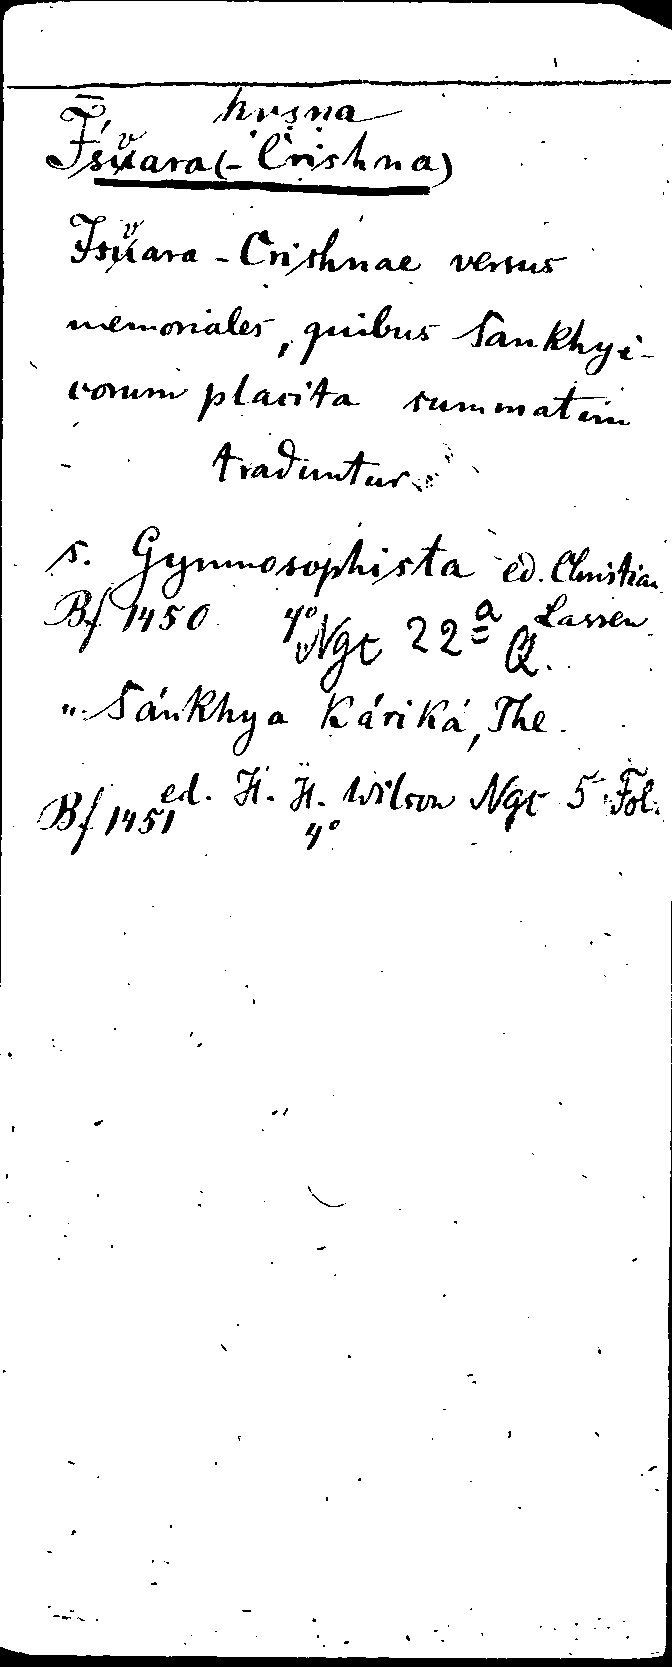 kṛṣṇa
Īśvara (- Crishna)
Isvara - Crishnae versus
memoriales, quibus Sankhyi-
corum placita summatim
traduntur.
s. Gymnosophista ed. Christian
Lassen
Bf 1450 4° Ngt 22 a Q.
" Sánkhya Káriká, The
ed. H. H. Wilson Ngt 5 Fol.
Bf 1451 4°